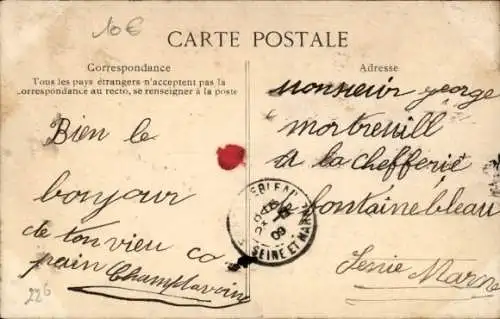 10€
CARTE POSTALE
Correspondance
Tous les pays étrangers n'acceptent pas la
correspondance au recto, se renseigner à la poste
Bien le
bonjour
de ton vieu co
pain Champlavoine
226
Adresse
Monsieur george
mortreuill
a la chefferie
fontainebleau
Senie Marne
EBLEAU
09
SEINE ET MAR